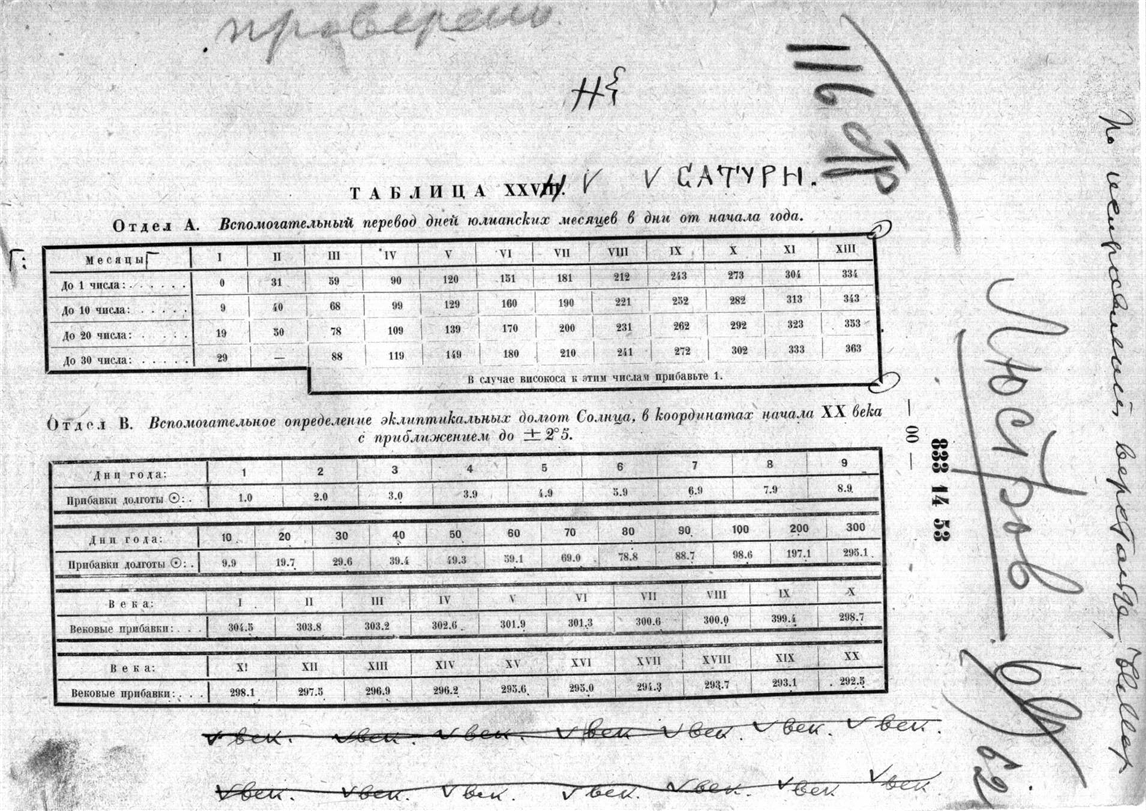 проверено
116 стр
ТАБЛИЦА XXVIII. V V САТУРН.
Отдел А. Вспомогательный перевод дней юлианских месяцев в дни от начала года.
Месяцы I II III IV V VI VII VIII IX X XI XIII
До 1 числа: . . . . . . 0 31 59 90 120 151 181 212 243 273 304 334
До 10 числа: . . . . . 9 40 68 99 129 160 190 221 252 282 313 343
До 20 числа: . . . . . 19 50 78 109 139 170 200 231 262 292 323 353
До 30 числа: . . . . . 29 — 88 119 149 180 210 241 272 302 333 363
В случае високоса к этим числам прибавьте 1.
Отдел В. Вспомогательное определение эклиптикальных долгот Солнца, в координатах начала XX века
с приближением до ± 2°5.
Дни года: 1 2 3 4 5 6 7 8 9
Прибавки долготы ☉: . 1.0 2.0 3.0 3.9 4.9 5.9 6.9 7.9 8.9
Дни года: 10 20 30 40 50 60 70 80 90 100 200 300
Прибавки долготы ☉: . 9.9 19.7 29.6 39.4 49.3 59.1 69.0 78.8 88.7 98.6 197.1 295.1
Века: I II III IV V VI VII VIII IX X
Вековые прибавки: . . . 304.5 303.8 303.2 302.6 301.9 301.3 300.6 300.0 399.4 298.7
Века: XI XII XIII XIV XV XVI XVII XVIII XIX XX
Вековые прибавки: . . . 298.1 297.5 296.9 296.2 295.6 295.0 294.3 293.7 293.1 292.5
век. век. век. век век. век. век.
век. век. век. век. век. век. век
— 00 —
833 14 53
Люстров
62
По